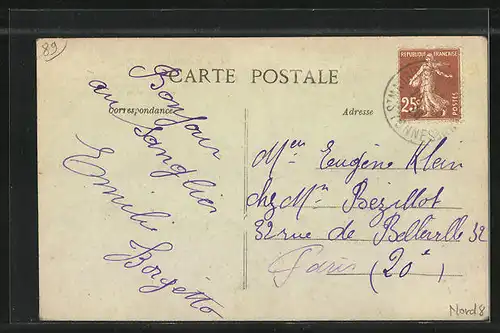 89
CARTE POSTALE
Correspondance
Adresse
REPUBLIQUE FRANÇAISE
25c
POSTES
Bonjour
au Sanglier
Emilie
Borgetto
Mr Eugène Klein
chez Mr Bezillot
32 rue de Belleville 32
Paris (20e)
Nord 8